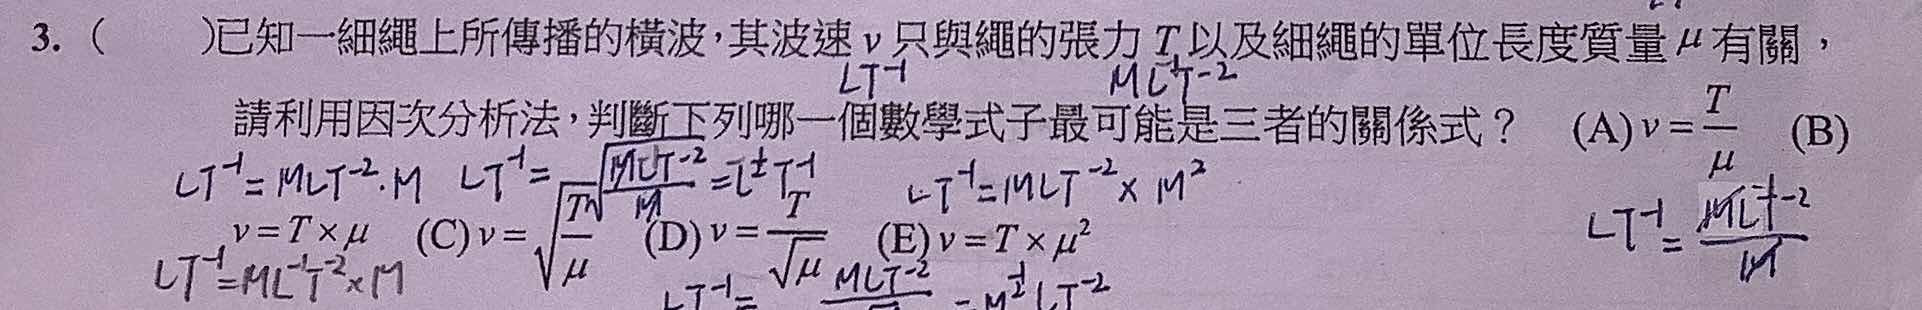 3. (　　)已知一細繩上所傳播的橫波，其波速 v 只與繩的張力 T 以及細繩的單位長度質量 μ 有關，
LT⁻¹ MLT⁻²
請利用因次分析法，判斷下列哪一個數學式子最可能是三者的關係式？ (A) v = T/μ (B)
LT⁻¹ = MLT⁻²·M LT⁻¹ = √(MLT⁻²/M) = L^½ T⁻¹ LT⁻¹ = MLT⁻² × M²
v = T × μ (C) v = √(T/μ) (D) v = T/√μ (E) v = T × μ² LT⁻¹ = MLT⁻²/M
LT⁻¹ = ML⁻¹T⁻² × M LT⁻¹ = MLT⁻² = M^½ LT⁻²